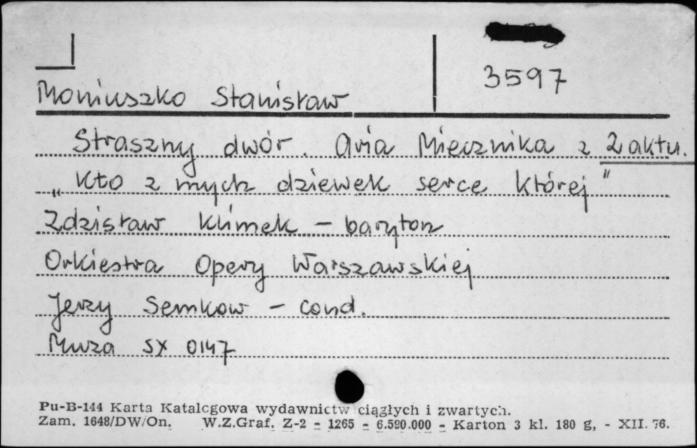 3597
Moniuszko Stanisław
Straszny dwór. Aria Miecznika z 2 aktu.
„Kto z mych dziewek serce której"
Zdzisław Klimek – baryton
Orkiestra Opery Warszawskiej
Jerzy Semkow – cond.
Muza SX 0147
Pu-B-144 Karta Katalogowa wydawnictw ciągłych i zwartych.
Zam. 1648/DW/On. W.Z.Graf. Z-2 - 1265 - 6.590.000 - Karton 3 kl. 180 g, - XII. 76.